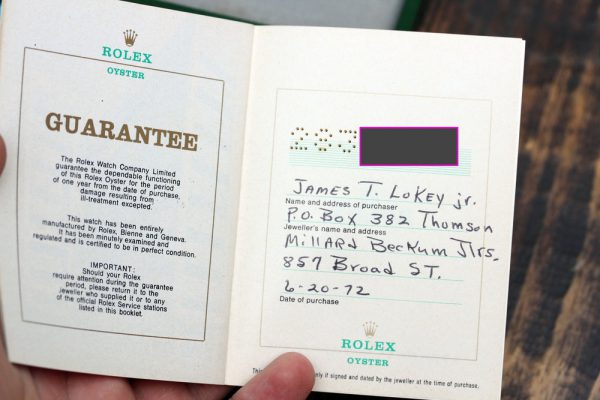 ROLEX
OYSTER
GUARANTEE
The Rolex Watch Company Limited
guarantee the dependable functioning
of this Rolex Oyster for the period
of one year from the date of purchase,
damage resulting from
ill-treatment excepted.
This watch has been entirely
manufactured by Rolex, Bienne and Geneva.
It has been minutely examined and
regulated and is certified to be in perfect condition.
IMPORTANT:
Should your Rolex
require attention during the guarantee
period, please return it to the
jeweller who supplied it or to any
of the official Rolex Service stations
listed in this booklet.
283
James T. Lokey jr.
Name and address of purchaser
P.O. Box 382 Thomson
Jeweller's name and address
Millard Beckum Jlrs.
857 Broad St.
6-20-72
Date of purchase
ROLEX
OYSTER
if signed and dated by the jeweller at the time of purchase.